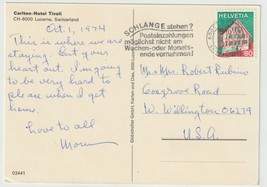 Carlton-Hotel Tivoli
CH-6002 Lucerne, Switzerland
Oct. 1, 1974
This is where we are
staying. Eat your
heart out. I'm going
to be very hard to
please when I get
home.
Love to all
Mom
03441
SCHLANGE stehen?
Posteinzahlungen
möglichst nicht am
Wochen- oder Monats-
ende vornehmen!
HELVETIA
80
Mr. & Mrs. Robert Rubino
Congress Road
W. Willington 06279
U.S.A.